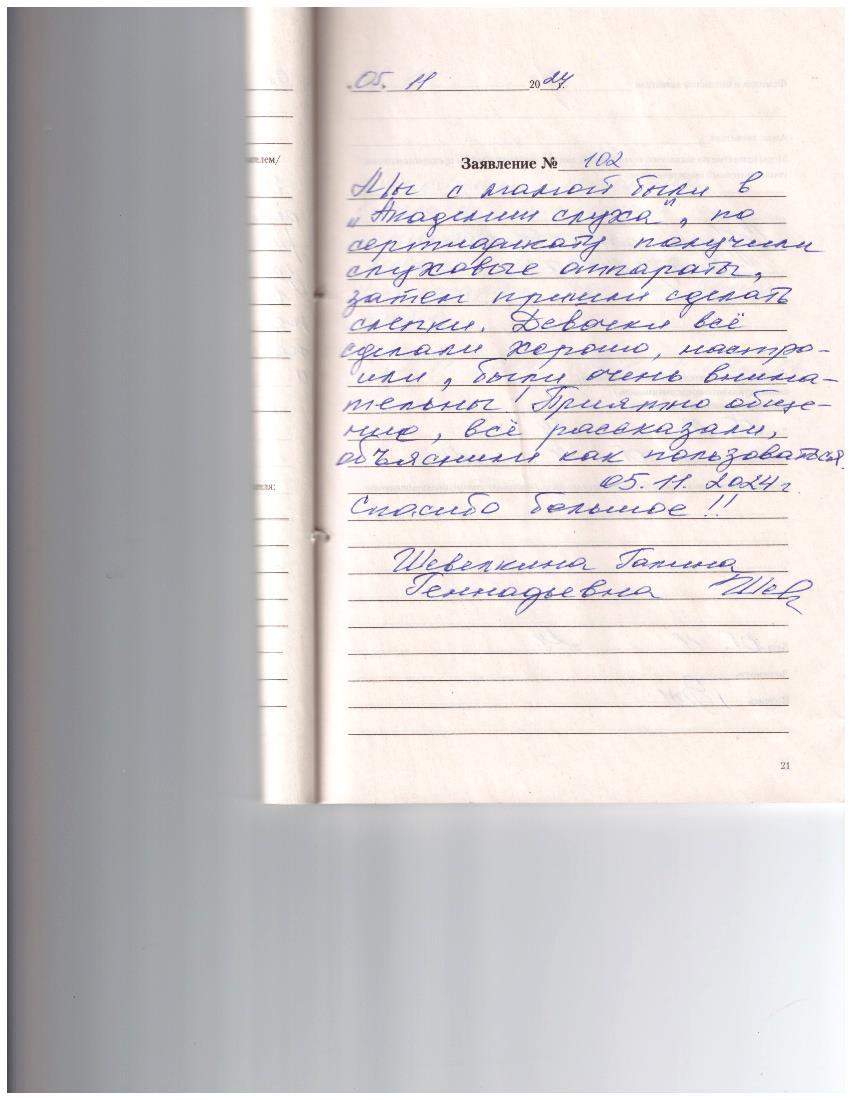 05. 11 2024 г.
Заявление № 102
Мы с мамой были в
"Академии слуха", по
сертификату получили
слуховые аппараты,
затем пришли сделать
слепки. Девочки всё
сделали хорошо, настро-
или, были очень внима-
тельны! Приятно обще-
ние, всё рассказали,
объяснили как пользоваться.
05.11.2024 г.
Спасибо большое!!
Галина
Геннадьевна Шев
21
ателем/
ателя: